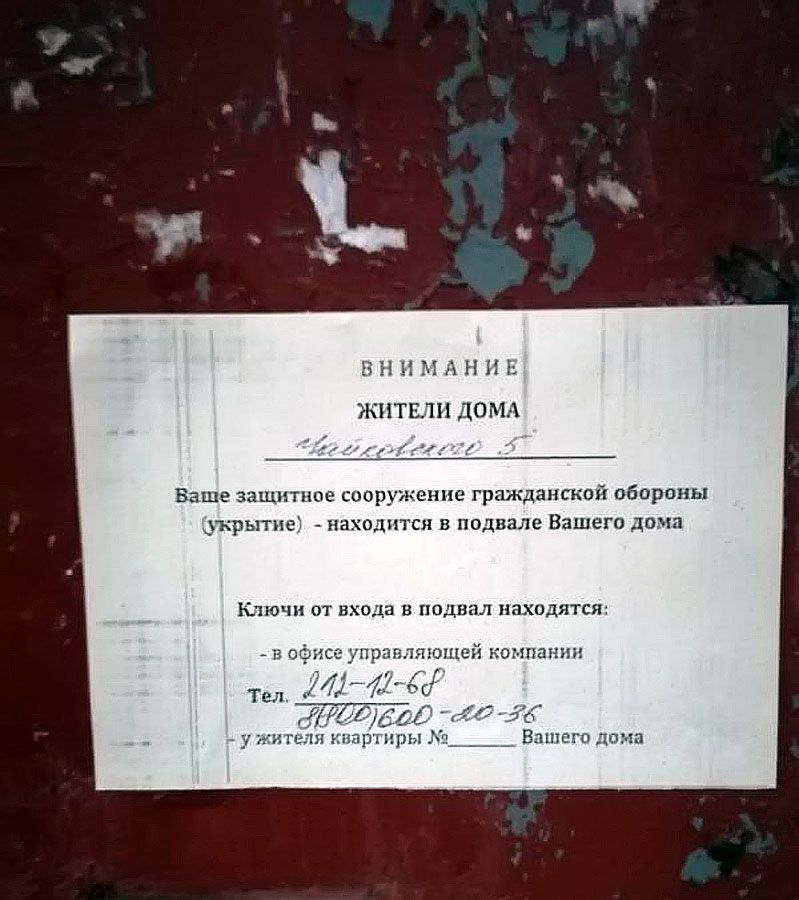 ВНИМАНИЕ
ЖИТЕЛИ ДОМА
Чайковского 5
Ваше защитное сооружение гражданской обороны
(укрытие) - находится в подвале Вашего дома
Ключи от входа в подвал находятся:
- в офисе управляющей компании
Тел. 212-12-68
8(800)600-20-36
- у жителя квартиры №______ Вашего дома